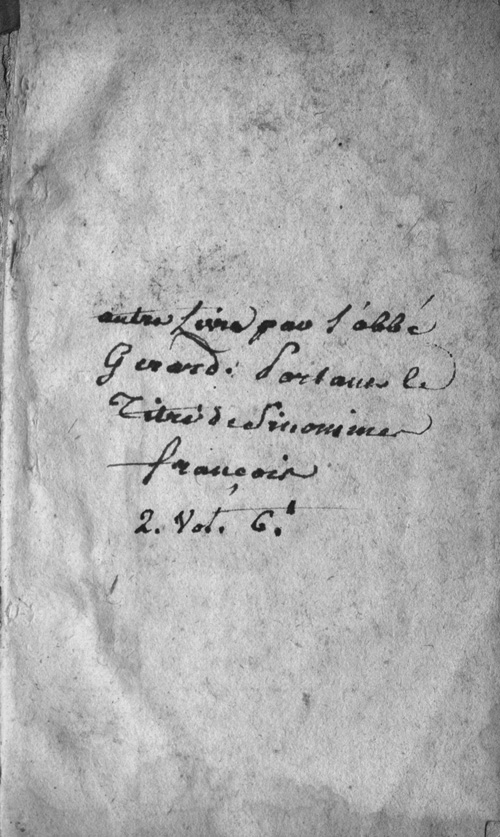 autre Livre par l'abbé
Gerard: Portant le
Titre de Sinonimes
françois
2. Vol. 6.ᵗ